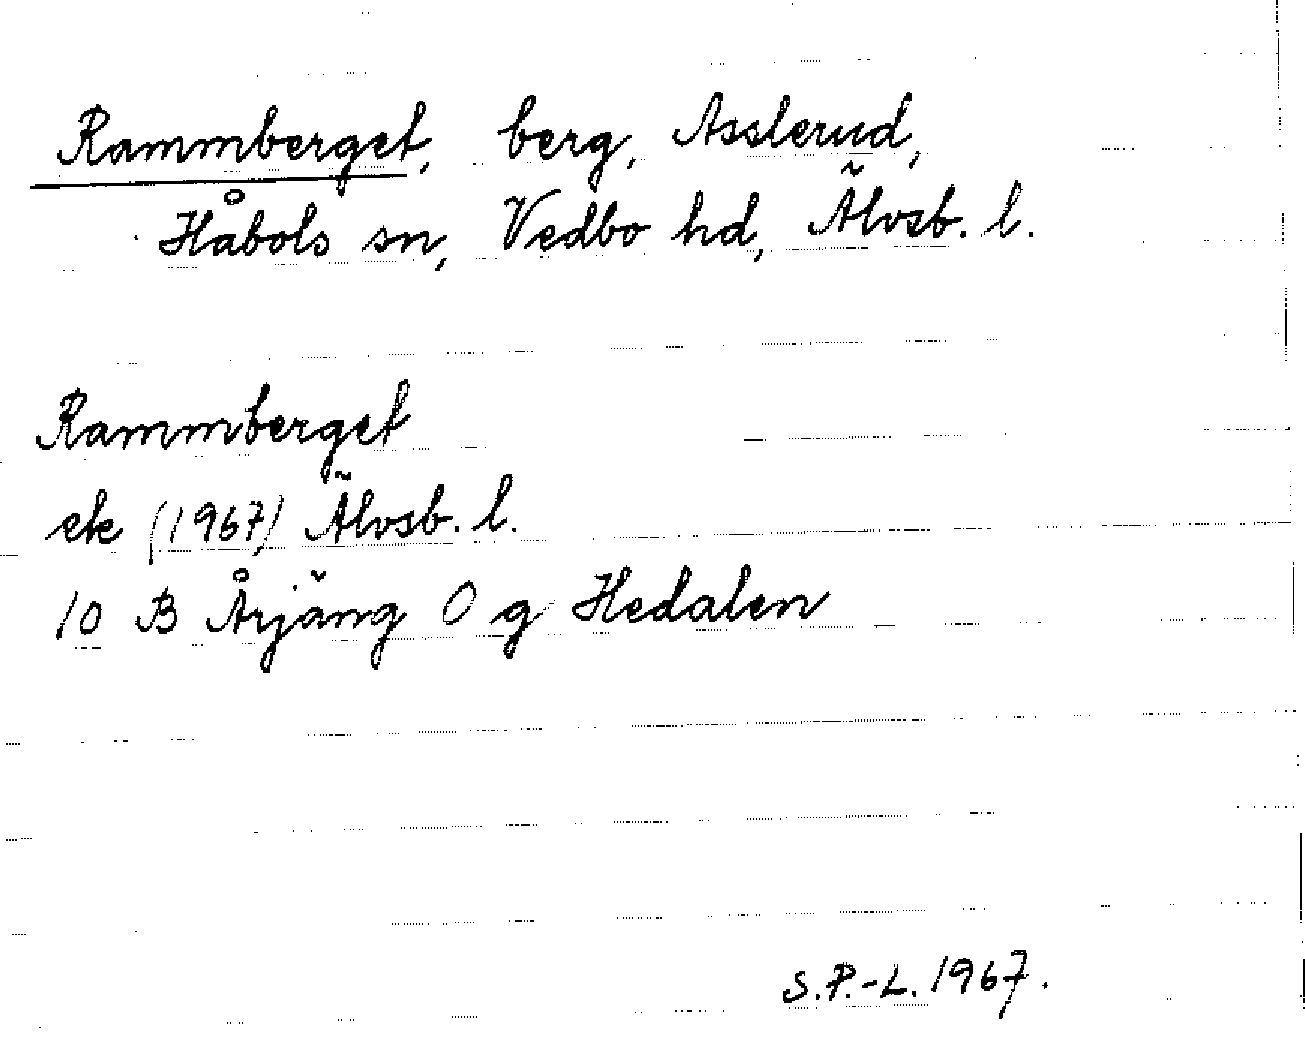 Rammberget, berg, Asslerud,
Håbols sn, Vedbo hd, Älvsb. l.
Rammberget
ek (1967) Älvsb. l.
10 B Årjäng O g Hedalen
S.P.-L. 1967.